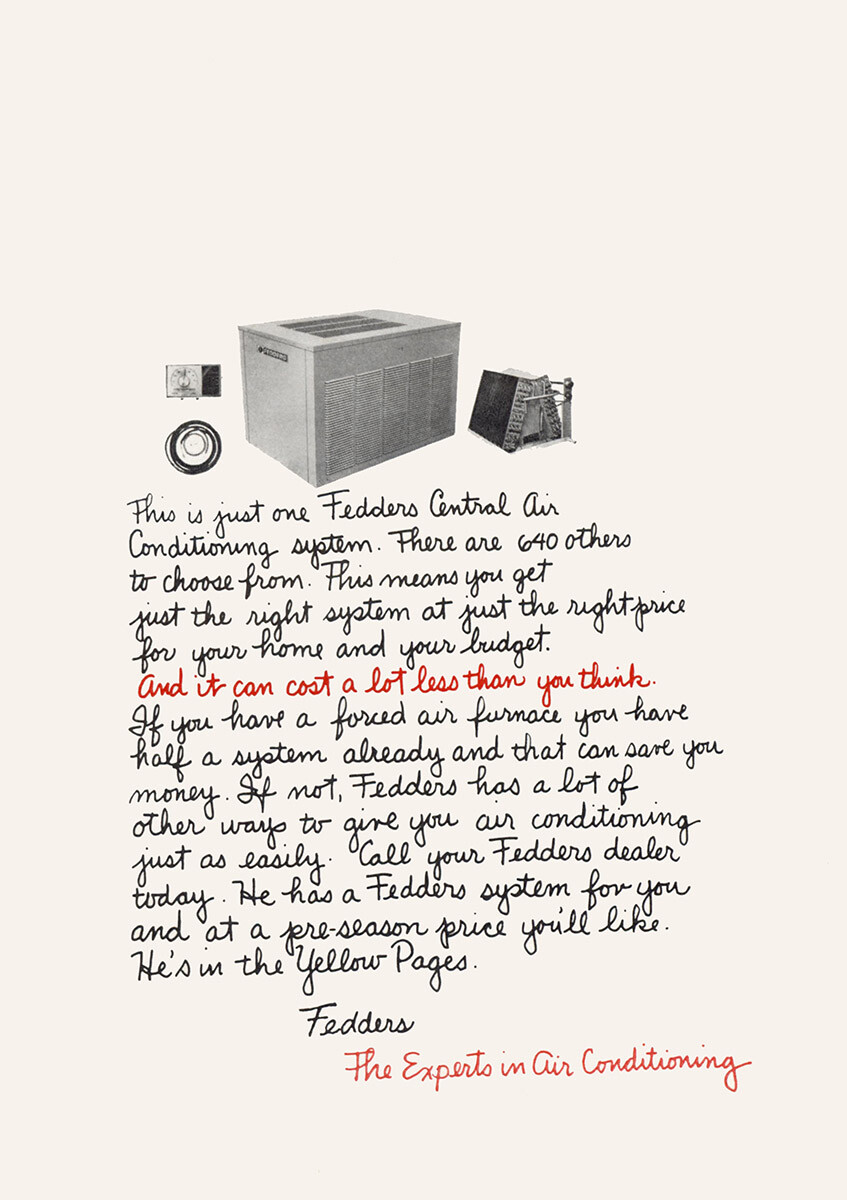 FEDDERS
This is just one Fedders Central Air
Conditioning system. There are 640 others
to choose from. This means you get
just the right system at just the right price
for your home and your budget.
And it can cost a lot less than you think.
If you have a forced air furnace you have
half a system already and that can save you
money. If not, Fedders has a lot of
other ways to give you air conditioning
just as easily. Call your Fedders dealer
today. He has a Fedders system for you
and at a pre-season price you'll like.
He's in the Yellow Pages.
Fedders
The Experts in Air Conditioning